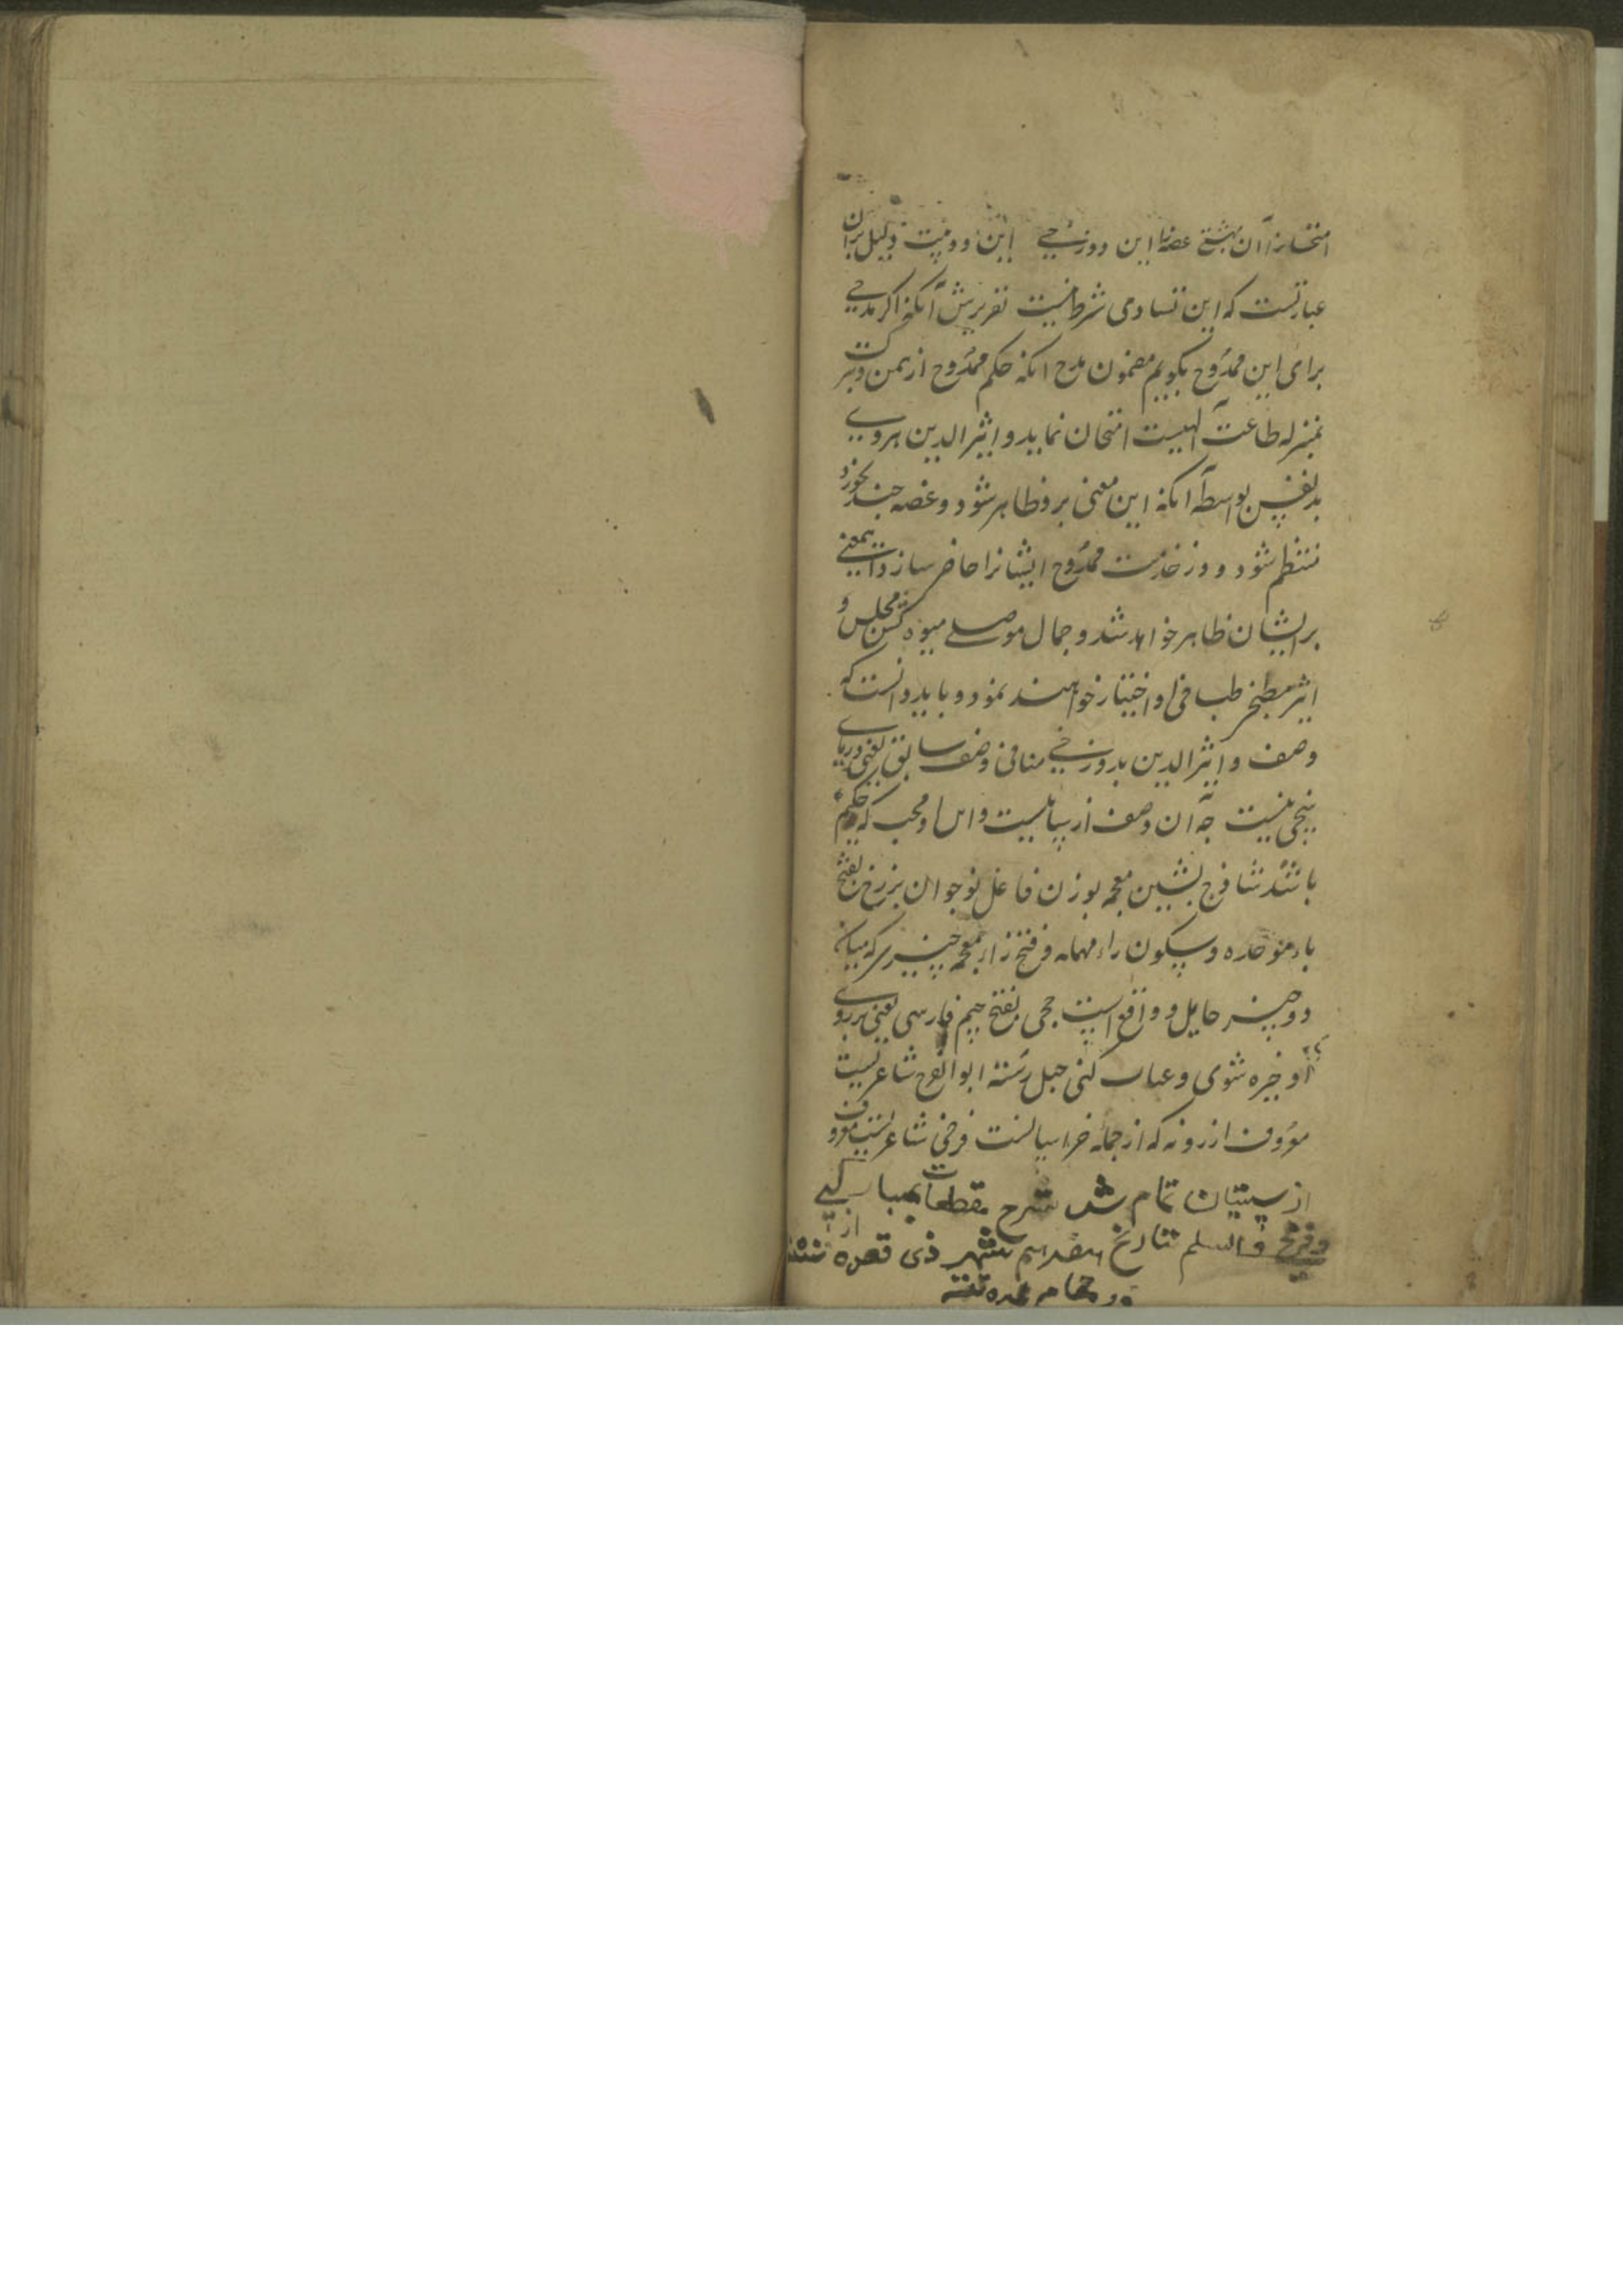 امتحانرا آن بهشتی عضه این دوزخی این دو بیت دلیل بران
عبارتست که این تساوی شرط نیست تقریرش آنکه اکر مدحی
برای این ممدوح بکویم مضمون مدح انکه حکم ممدوح از یمن و برکت
بمنزله طاعت الهیست امتحان نماید و اثیر الدین هروی
بد نفس بواسطه آنکه این معنی برو ظاهر شود و غصه چند بخورد
منتظم شود و در خدمت ممدوح ایشانرا حاضر سازد این معنی
بر ایشان ظاهر خواهد شد و جمال موصلی میوه کش مجلس و
اثیر مطبخ طباخی او اختیار خواهند نمود و باید دانست که
وصف اثیر الدین بدوزخی منافی وصف سابق یعنی دریای
نیست چه آن وصف از و محب که حکیم
باشد شافرج بشین معجمه بوزن فاعل نوجوان برزخ بفتح
باء موحده و سکون راء مهمله و فتح زاء معجمه چیزی که میان
دو چیز حایل و واقع است چحی بفتح جیم فارسی یعنی بر روی
او خیره شوی و عتاب کنی حبل رسته ابوالفرج شاعریست
معروف از رونه که از جمله خراسانست فرخی شاعریست معروف
از سیستان تمام شد شرح مقطعات بمبارکی
و فرخی والسلم تاریخ هفدهم شهر ذی قعده